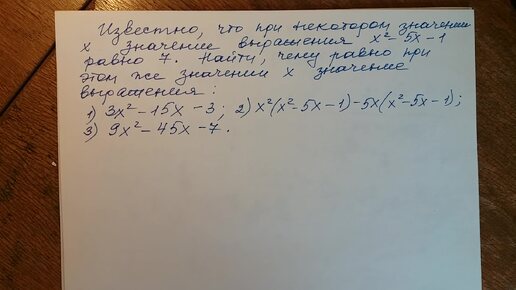 Известно, что при некотором значении
x значение выражения x² - 5x - 1
равно 7. Найти, чему равно при
этом же значении x значение
выражения:
1) 3x² - 15x - 3; 2) x²(x² - 5x - 1) - 5x(x² - 5x - 1);
3) 9x² - 45x - 7.